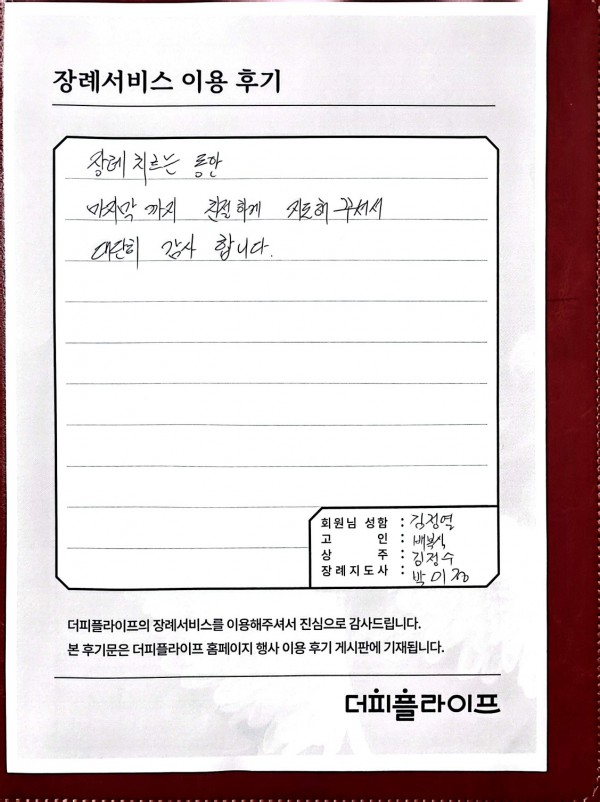 장례서비스 이용 후기
장례 치르는 동안
마지막 까지 친절하게 지도해 주셔서
대단히 감사 합니다.
회원님 성함 : 김정열
고 인 : 배복식
상 주 : 김정수
장례지도사 : 박이정
더피플라이프의 장례서비스를 이용해주셔서 진심으로 감사드립니다.
본 후기문은 더피플라이프 홈페이지 행사 이용 후기 게시판에 기재됩니다.
더피플라이프